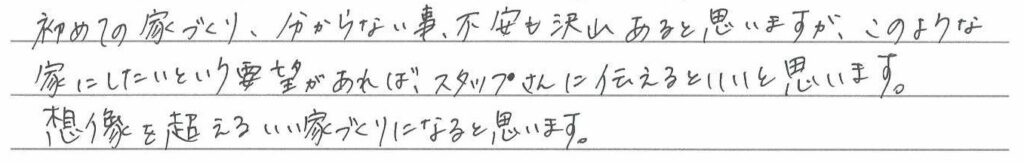 初めての家づくり、分からない事、不安も沢山あると思いますが、このような
家にしたいという要望があれば、スタップさんに伝えるといいと思います。
想像を超えるいい家づくりになると思います。